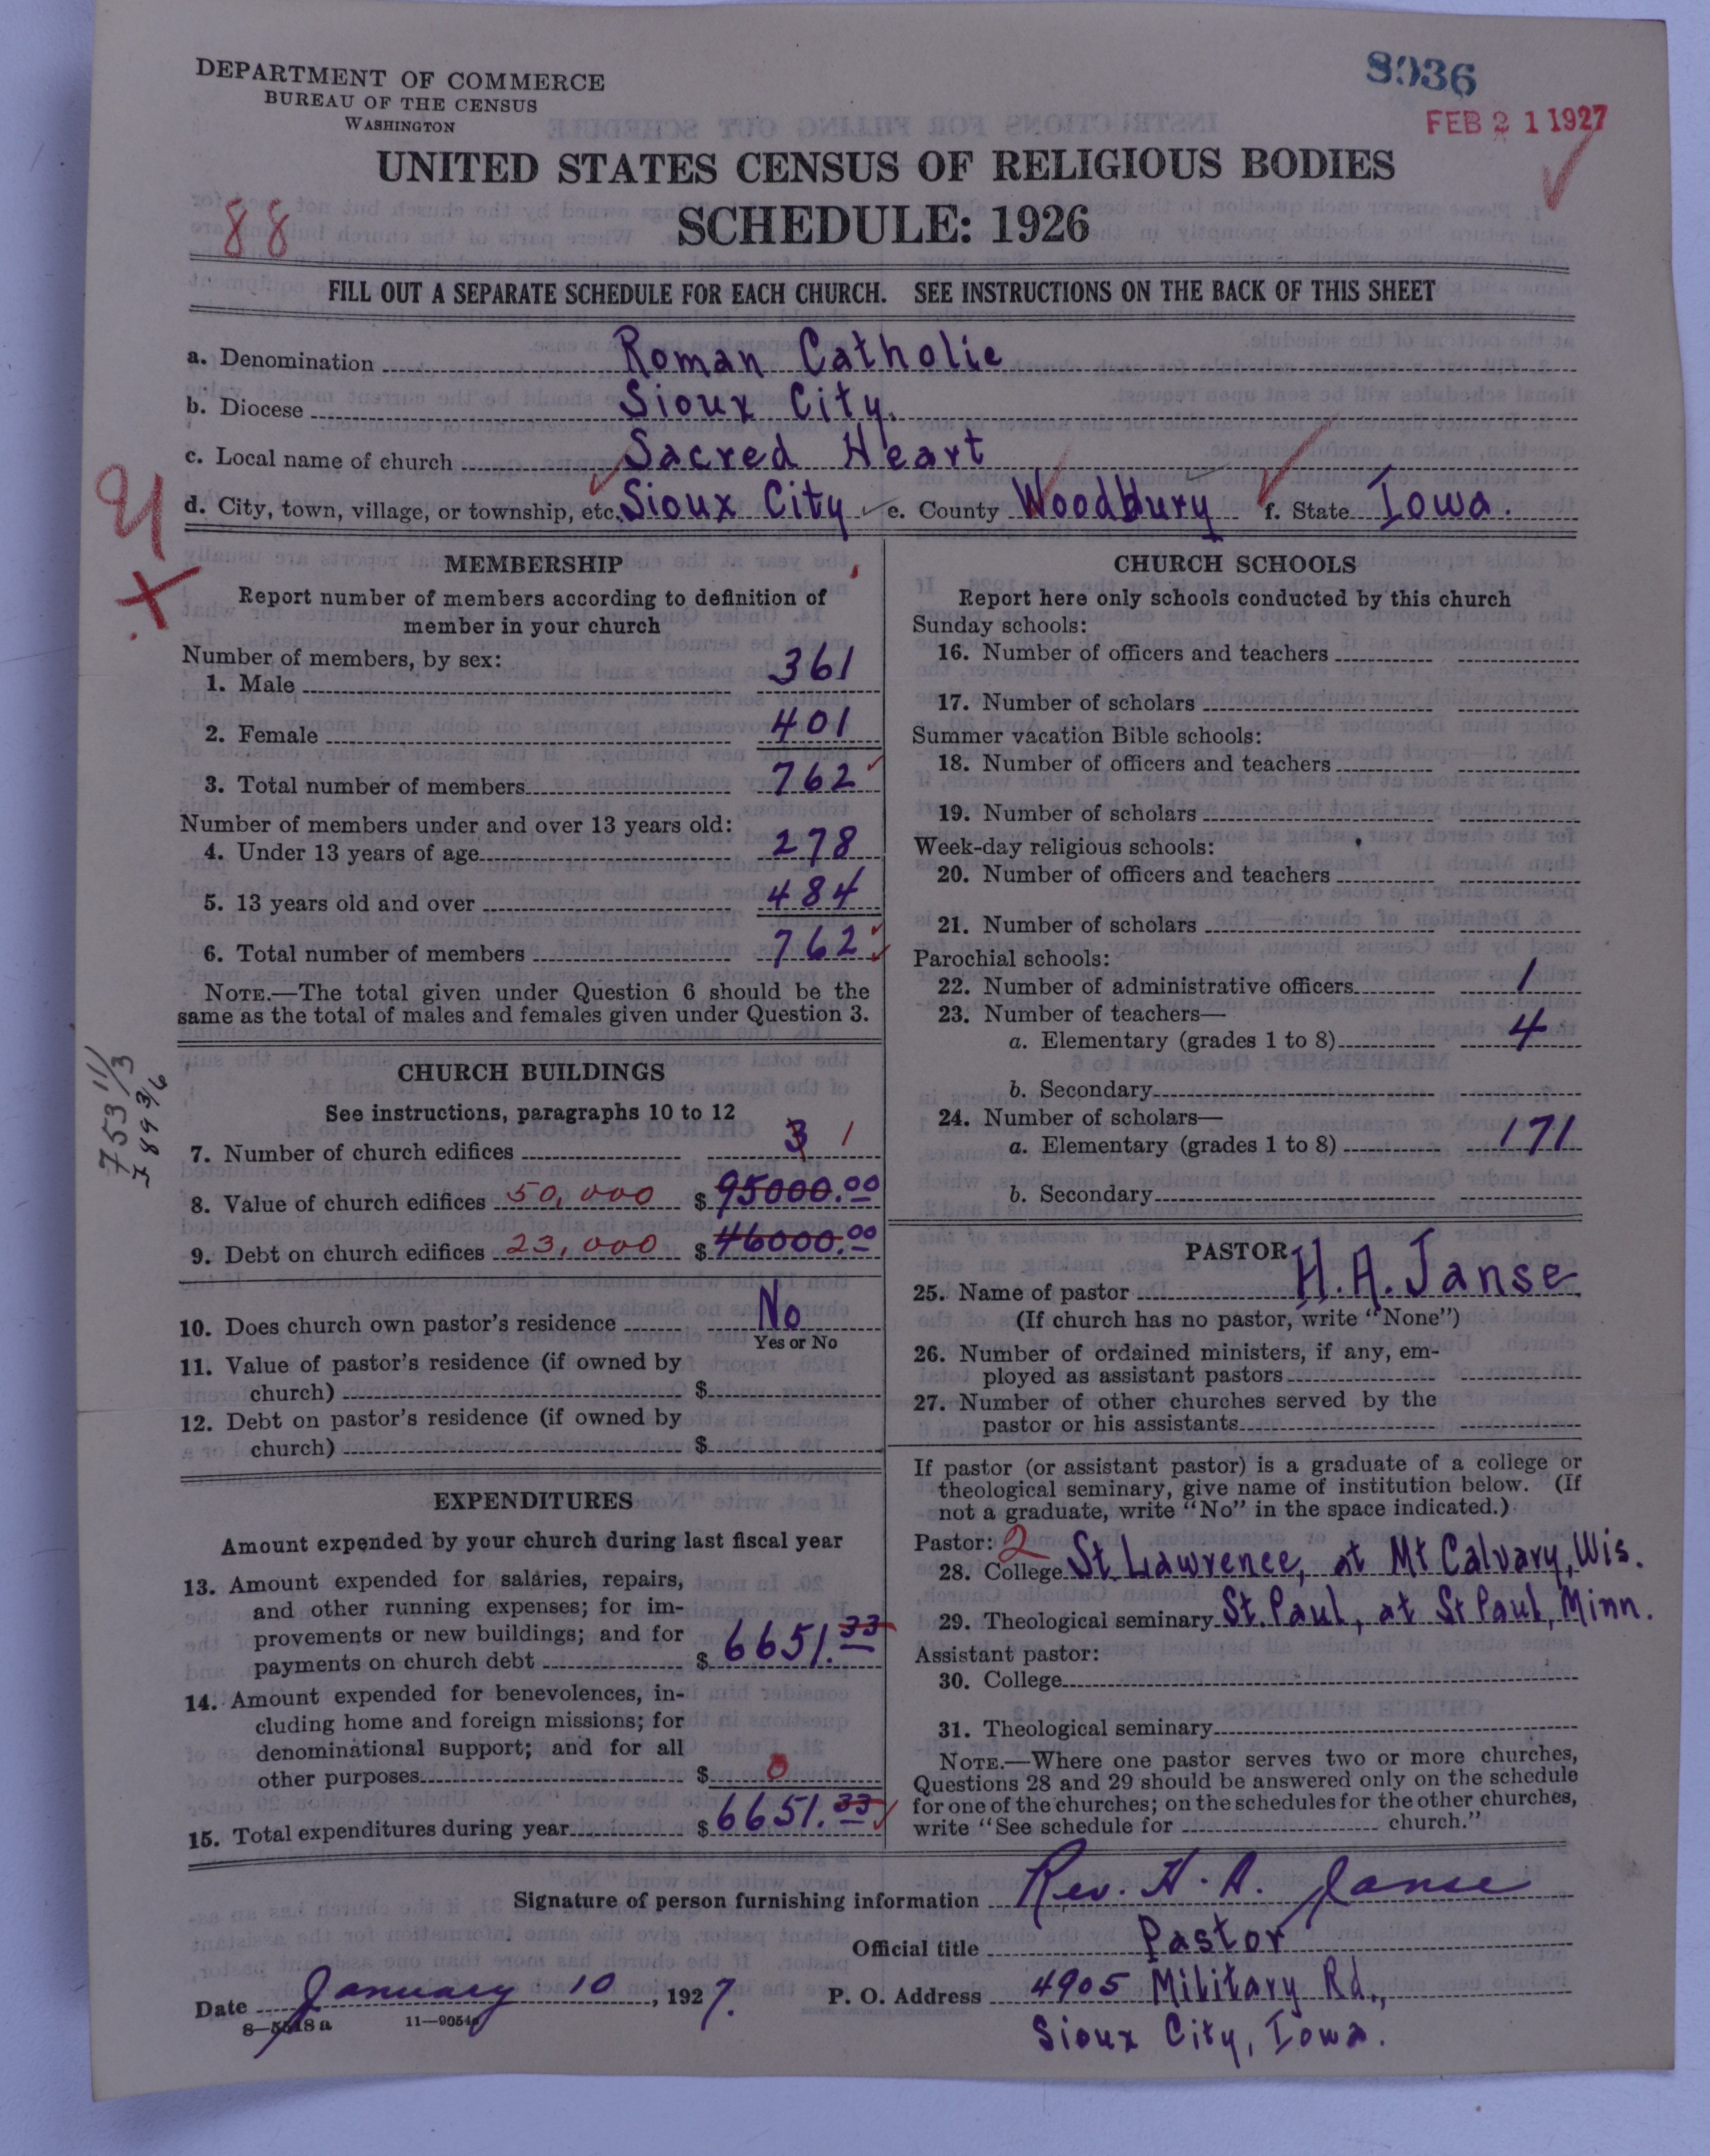 DEPARTMENT OF COMMERCE
BUREAU OF THE CENSUS
WASHINGTON
8936
FEB 21 1927
UNITED STATES CENSUS OF RELIGIOUS BODIES
88
SCHEDULE: 1926
FILL OUT A SEPARATE SCHEDULE FOR EACH CHURCH. SEE INSTRUCTIONS ON THE BACK OF THIS SHEET
a. Denomination Roman Catholic
b. Diocese Sioux City.
c. Local name of church Sacred Heart
d. City, town, village, or township, etc. Sioux City e. County Woodbury f. State Iowa.
MEMBERSHIP
Report number of members according to definition of
member in your church
Number of members, by sex:
1. Male 361
2. Female 401
3. Total number of members 762
Number of members under and over 13 years old:
4. Under 13 years of age 278
5. 13 years old and over 484
6. Total number of members 762
NOTE.—The total given under Question 6 should be the
same as the total of males and females given under Question 3.
CHURCH BUILDINGS
See instructions, paragraphs 10 to 12
7. Number of church edifices 3 1
8. Value of church edifices 50,000 $ 95000.00
9. Debt on church edifices 23,000 $ 46000.00
10. Does church own pastor's residence No
Yes or No
11. Value of pastor's residence (if owned by
church) $
12. Debt on pastor's residence (if owned by
church) $
EXPENDITURES
Amount expended by your church during last fiscal year
13. Amount expended for salaries, repairs,
and other running expenses; for im-
provements or new buildings; and for
payments on church debt $ 6651.33
14. Amount expended for benevolences, in-
cluding home and foreign missions; for
denominational support; and for all
other purposes $ 0
15. Total expenditures during year $ 6651.33
CHURCH SCHOOLS
Report here only schools conducted by this church
Sunday schools:
16. Number of officers and teachers
17. Number of scholars
Summer vacation Bible schools:
18. Number of officers and teachers
19. Number of scholars
Week-day religious schools:
20. Number of officers and teachers
21. Number of scholars
Parochial schools:
22. Number of administrative officers 1
23. Number of teachers—
a. Elementary (grades 1 to 8) 4
b. Secondary
24. Number of scholars—
a. Elementary (grades 1 to 8) 171
b. Secondary
PASTOR
25. Name of pastor H. A. Janse
(If church has no pastor, write "None")
26. Number of ordained ministers, if any, em-
ployed as assistant pastors
27. Number of other churches served by the
pastor or his assistants
If pastor (or assistant pastor) is a graduate of a college or
theological seminary, give name of institution below. (If
not a graduate, write "No" in the space indicated.)
Pastor: 2
28. College St Lawrence, at Mt Calvary, Wis.
29. Theological seminary St. Paul, at St Paul, Minn.
Assistant pastor:
30. College
31. Theological seminary
NOTE.—Where one pastor serves two or more churches,
Questions 28 and 29 should be answered only on the schedule
for one of the churches; on the schedules for the other churches,
write "See schedule for church."
Signature of person furnishing information Rev. H. A. Janse
Official title Pastor
Date January 10, 1927. P. O. Address 4905 Military Rd.,
Sioux City, Iowa.